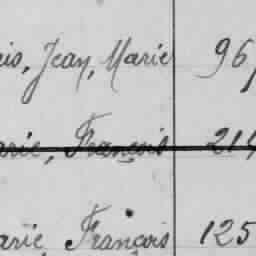 is, Jean, Marie 96
arie, François 21
arie, François 125